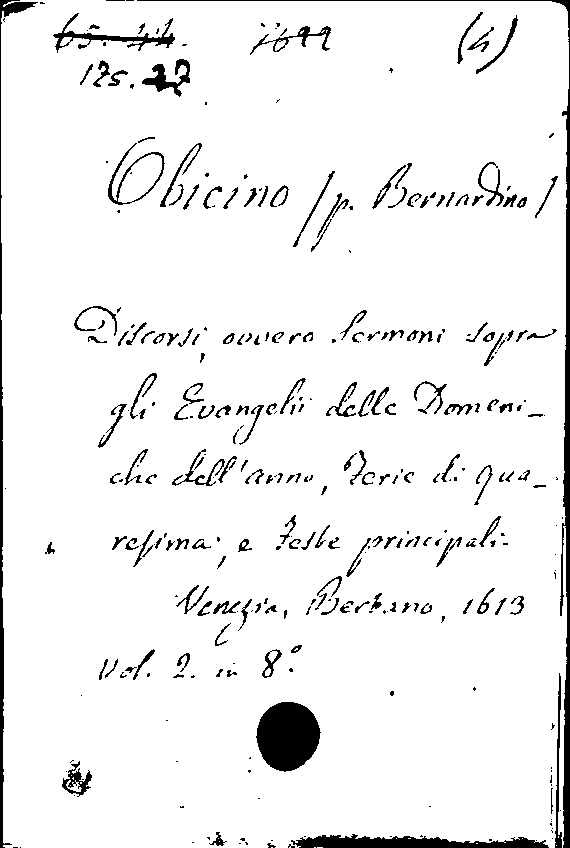 65. 44. 1699 (4)
125. 27
Obicino /p. Bernardino/
Discorsi, ovvero Sermoni sopra
gli Evangelii delle Domeni-
che dell'anno, Ferie di qua-
resima, e Feste principali.
Venezia, Bertano, 1613
Vol. 2. in 8.°